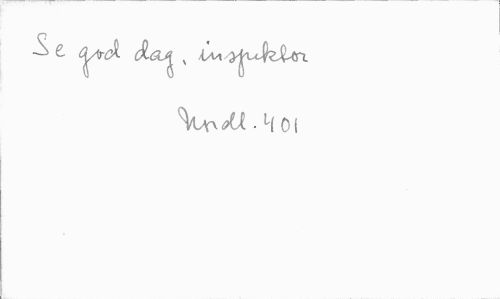 Se god dag, inspektor
Nordl. 401